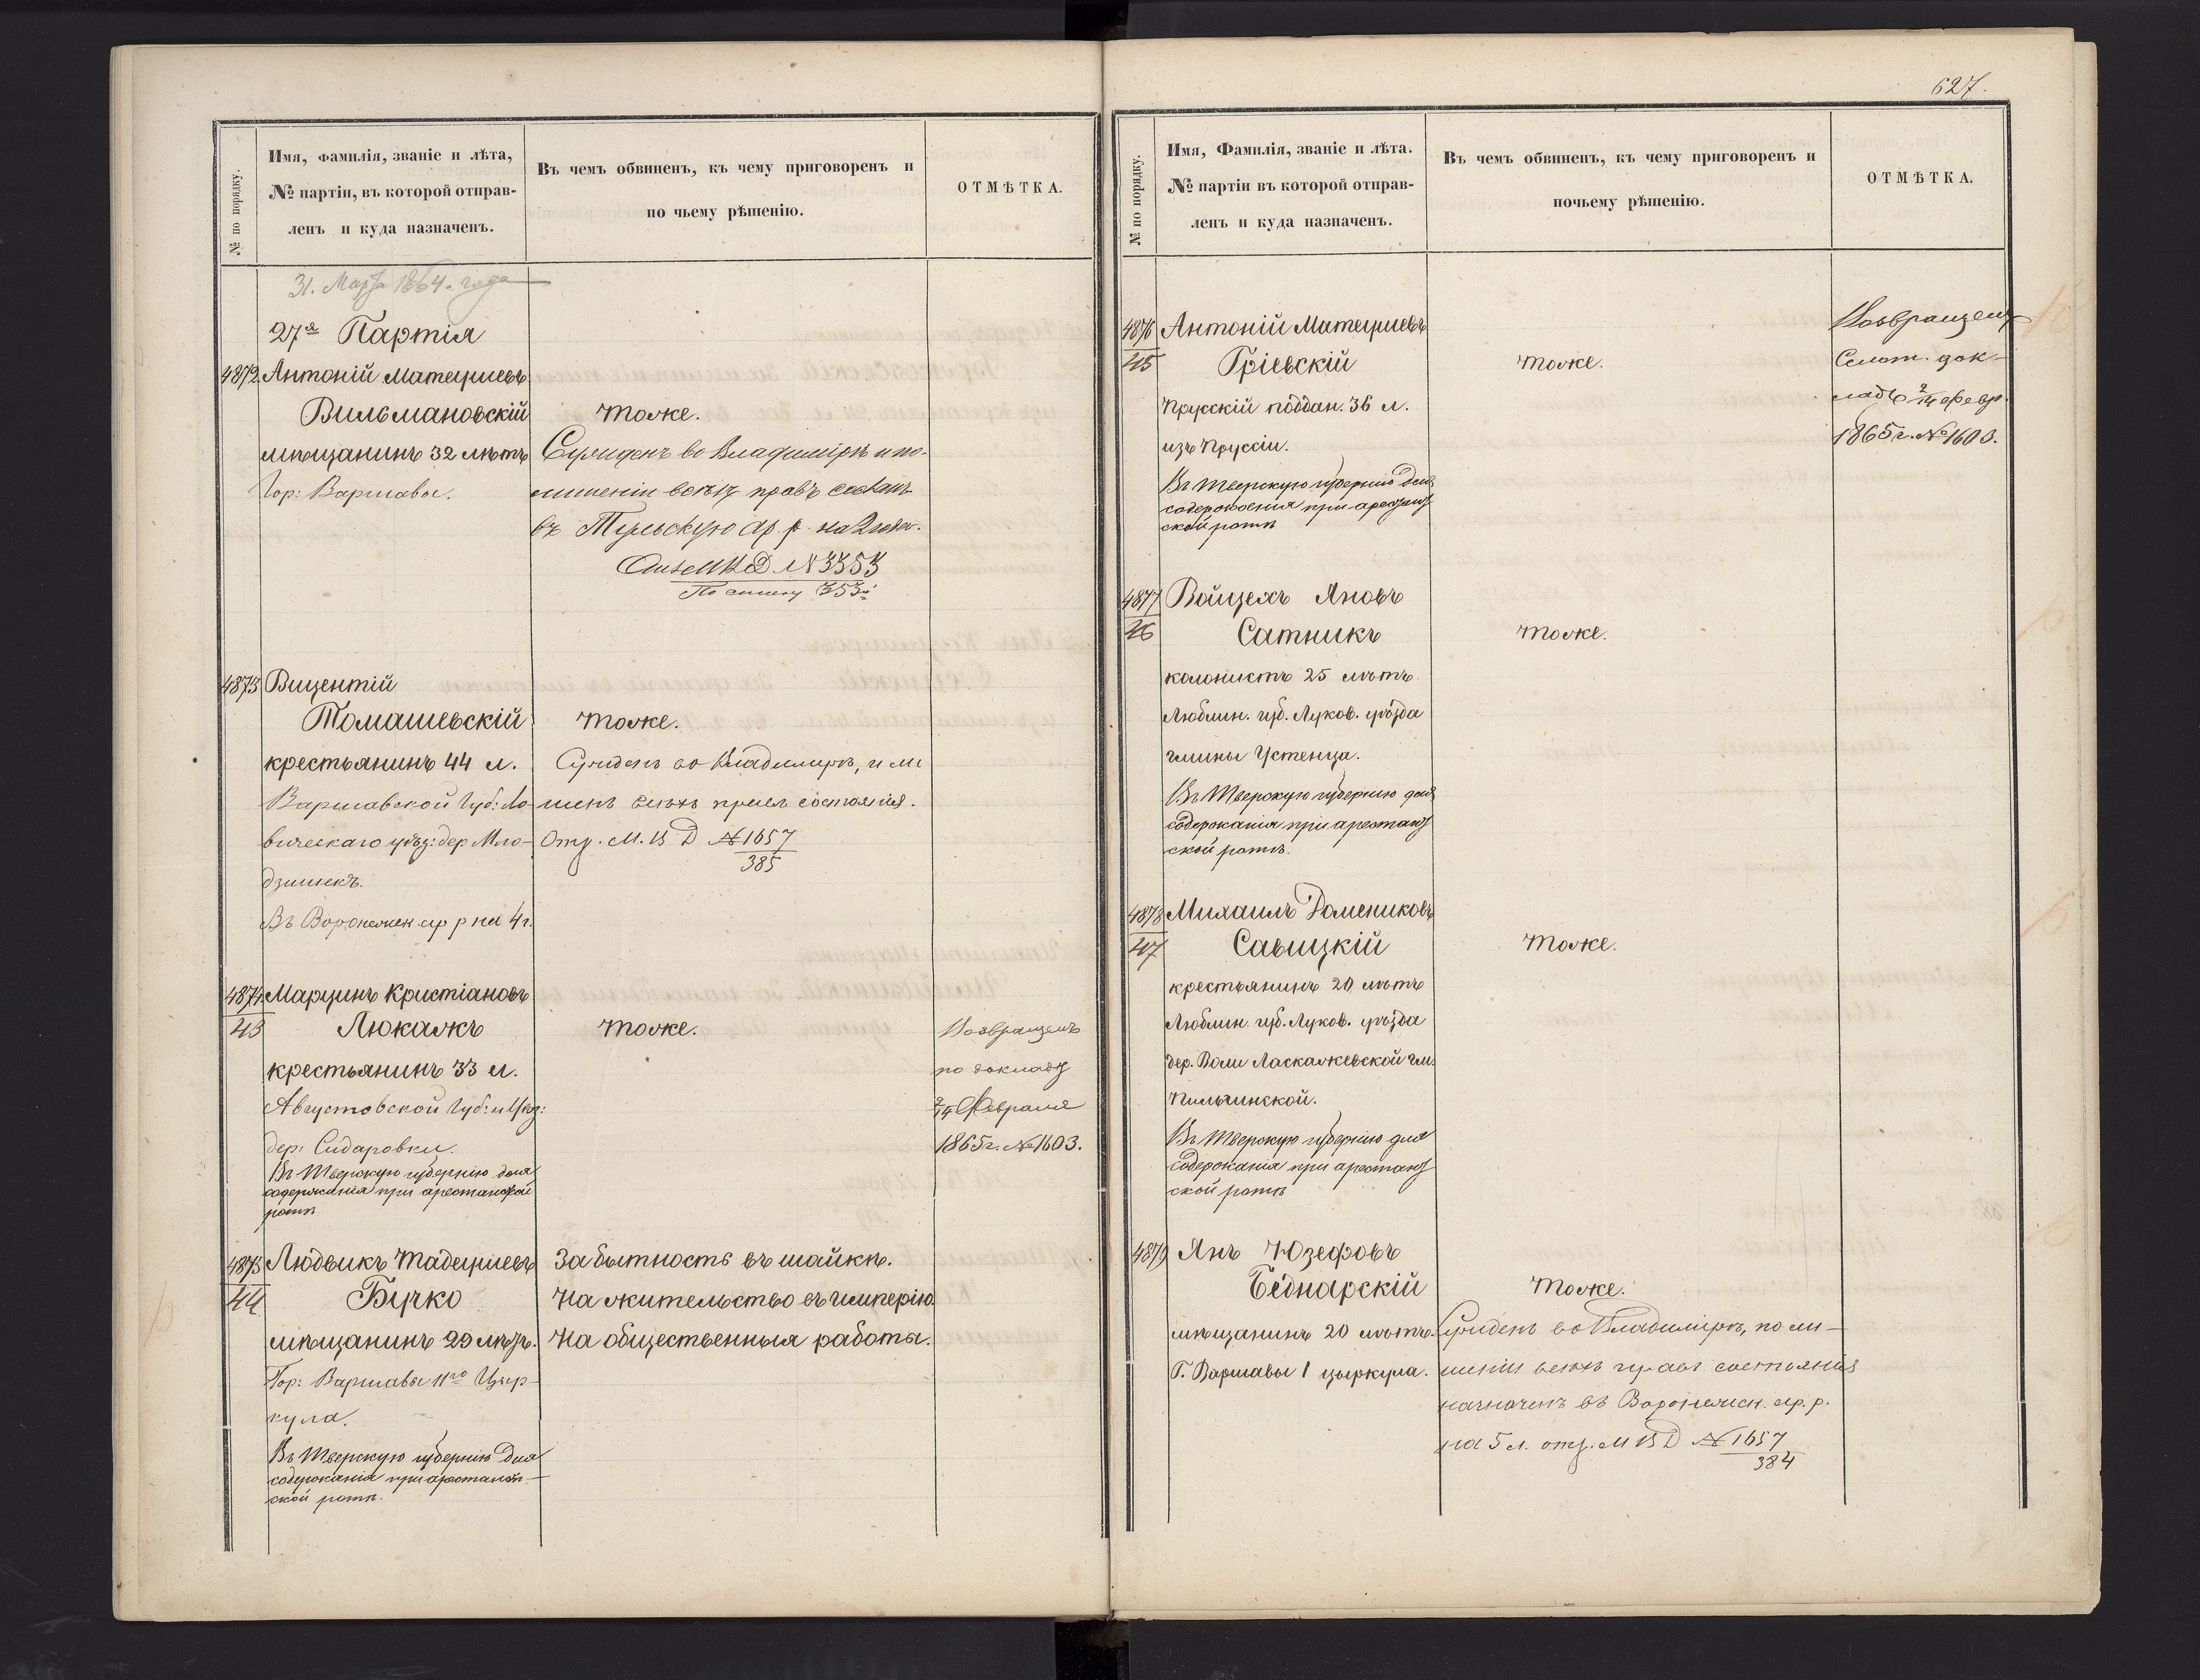 № по порядку.
Имя, фамилія, званіе и лѣта,
№ партіи, въ которой отправ-
ленъ и куда назначенъ.
Въ чемъ обвиненъ, къ чему приговоренъ и
по чьему рѣшенію.
ОТМѢТКА.
31. Марта 1864. года
27я Партія
4872 Антоній Матеушевъ
Вильмановскій
мѣщанинъ 32 лѣтъ
Гор: Варшавы.
тоже.
Сужденъ во Владимірѣ и по
лишеніи всѣхъ правъ состоян
въ Тульскую ар. р. на 2 года.
МВД № 3353
По списку 353
4873 Вицентій
Томашевскій
крестьянинъ 44 л.
Варшавской Губ: Ло-
вическаго уѣз: дер Мло-
дзинекъ.
Въ Воронежск ар р на 4 г.
тоже.
Сужденъ во Владимірѣ, и ли
шенъ всѣхъ правъ состоянія.
Отз. М. В Д № 1657
385
4874 Марцинъ Кристіановъ
43 Люкажъ
крестьянинъ 33 л.
Августовской Губ: и Уѣз:
дер: Сидаровки.
Въ Тверскую губернію для
содержанія при арестанской
ротѣ
тоже.
Возвращенъ
по докладу
2/14 Февраля
1865 г. № 1603.
4875 Людвикъ Тадеушевъ
44 Бучко
мѣщанинъ 29 лѣтъ.
Гор: Варшавы 11го Цыр-
кула.
Въ Тверскую губернію для
содержанія при арестант-
ской ротѣ.
За бытность въ шайкѣ.
На жительство въ имперію.
На общественныя работы.
627.
№ по порядку.
Имя, Фамилія, званіе и лѣта.
№ партіи въ которой отправ-
ленъ и куда назначенъ.
Въ чемъ обвиненъ, къ чему приговоренъ и
почьему рѣшенію.
ОТМѢТКА.
4876 Антоній Матеушевъ
45 Гріевскій
Прусскій поддан. 36 л.
изъ Пруссіи.
Въ Тверскую губернію для
содержанія при арестант
ской ротѣ
тоже.
Возвращенъ
док-
ладъ 2/14 февр.
1865 г. № 1603.
4877 Войцехъ Яновъ
46 Сатникъ
колонистъ 25 лѣтъ
Люблин. губ. Луков. уѣзда
гмины Устенца.
Въ Тверскую губернію для
содержанія при арестант
ской ротѣ.
тоже.
4878 Михаилъ Домениковъ
47 Савицкій
крестьянинъ 20 лѣтъ
Люблин губ. Луков. уѣзда
дер. Воли Ласкажевской гм.
Пильчинской.
Въ Тверскую губернію для
содержанія при арестант
ской ротѣ
тоже.
4879 Янъ Юзефовъ
Беднарскій
мѣщанинъ 20 лѣтъ.
Г. Варшавы 1 цыркула.
тоже.
Сужденъ во Владимірѣ, по ли-
шеніи всѣхъ правъ состоянія
назначенъ въ Воронежск. ар. р.
на 5 л. отз. М В Д № 1657
384